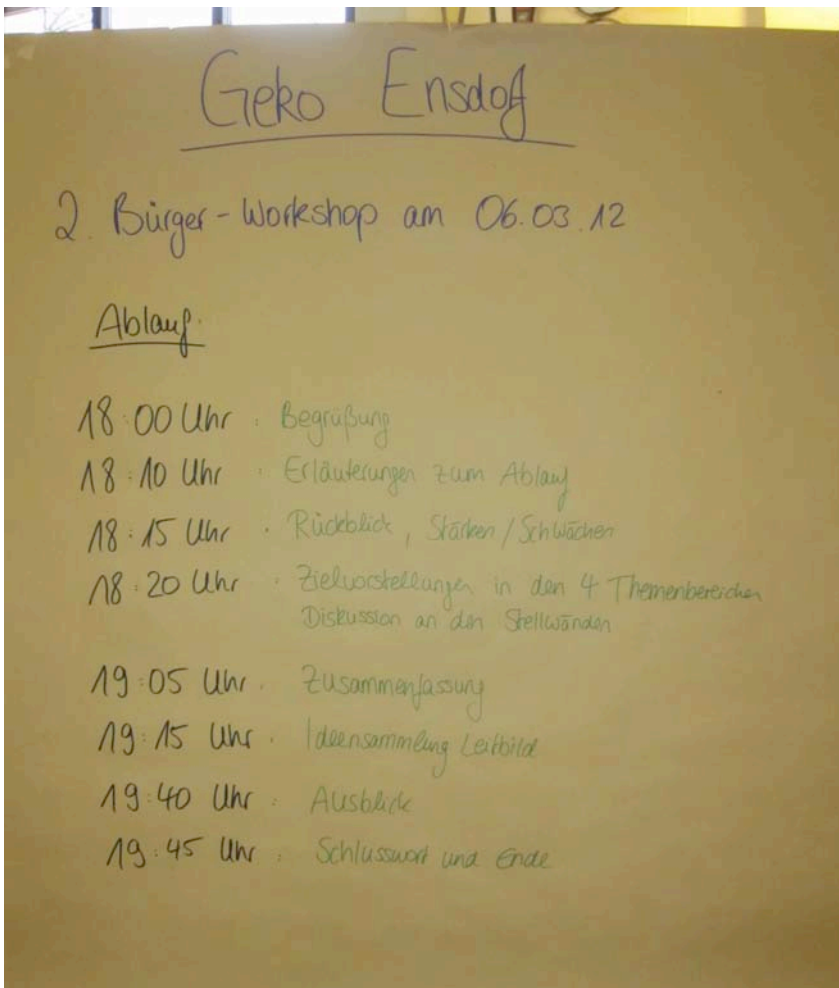 Geko Ensdorf
2. Bürger-Workshop am 06.03.12
Ablauf:
18:00 Uhr : Begrüßung
18:10 Uhr : Erläuterungen zum Ablauf
18:15 Uhr : Rückblick, Stärken/Schwächen
18:20 Uhr : Zielvorstellungen in den 4 Themenbereichen
Diskussion an den Stellwänden
19:05 Uhr : Zusammenfassung
19:15 Uhr : Ideensammlung Leitbild
19:40 Uhr : Ausblick
19:45 Uhr : Schlusswort und Ende